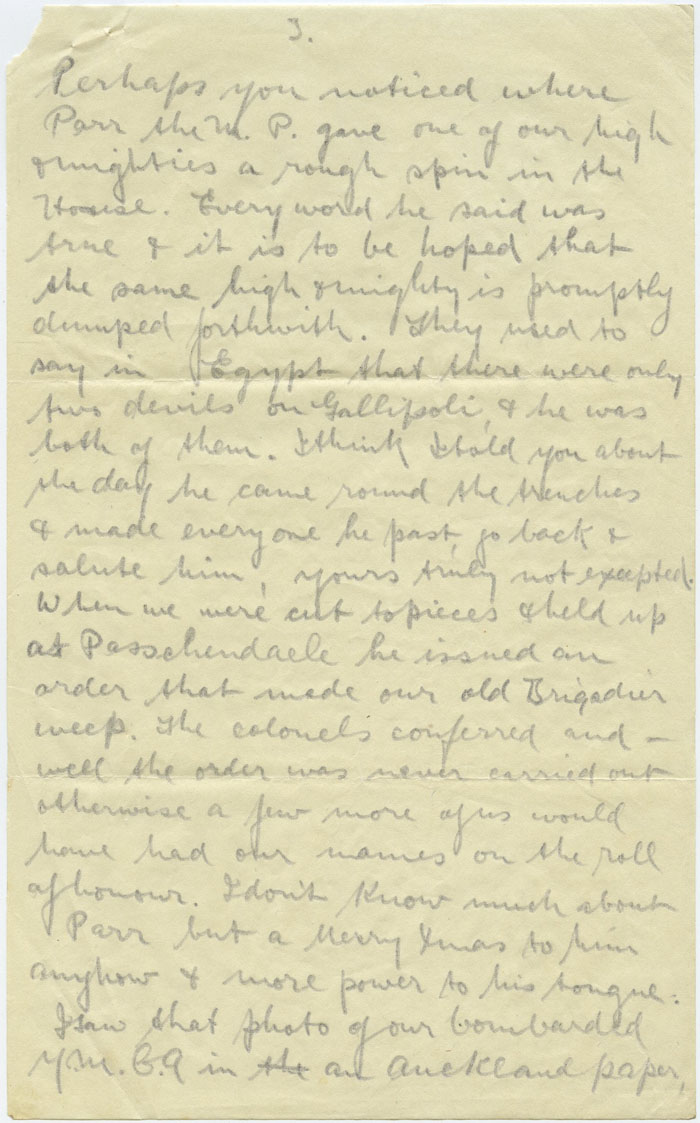 3.
Perhaps you noticed where
Parr the M. P. gave one of our high
& mighties a rough spin in the
House. Every word he said was
true & it is to be hoped that
the same high & mighty is promptly
dumped forthwith. They used to
say in Egypt that there were only
two devils on Gallipoli, & he was
both of them. I think I told you about
the day he came round the trenches
& made everyone he past, go back &
salute him, yours truly not excepted.
When we were cut to pieces & held up
at Passchendaele he issued an
order that made our old Brigadier
weep. The colonels conferred and –
well the order was never carried out
otherwise a few more of us would
have had our names on the roll
of honour. I don't know much about
Parr but a Merry Xmas to him
anyhow & more power to his tongue.
I saw that photo of our bombarded
Y.M.C.A in the an Auckland paper,